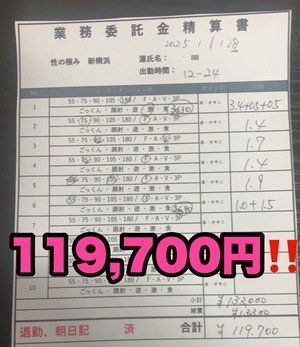 業務委託金精算書
2025 1/28
性の極み 新横浜 源氏名:
出勤時間: 12-24
1 55・75・90・105・180/ F・A・V・3P 3.4+0.5+0.5
ごっくん・顔射・遊・激・食
2 55・75・90・105・180/ F・A・V・3P 1.4
ごっくん・顔射・遊・激・食
3 55・75・90・105・180/ F・A・V・3P 1.7
ごっくん・顔射・遊・激・食
4 55・75・90・105・180/ F・A・V・3P 1.4
ごっくん・顔射・遊・激・食
5 55・75・90・105・180/ F・A・V・3P 1.9
ごっくん・顔射・遊・激・食
6 55・75・90・105・180/ F・A・V・3P 1.0+1.5
ごっくん・顔射・遊・激・食
119,700円‼️
10 55・75・90・105・180/ F・A・V・3P
ごっくん・顔射・遊・激・食
小計 ¥133,000
雑費 ¥13,300
退勤、朝日記 済 合計 ¥119,700